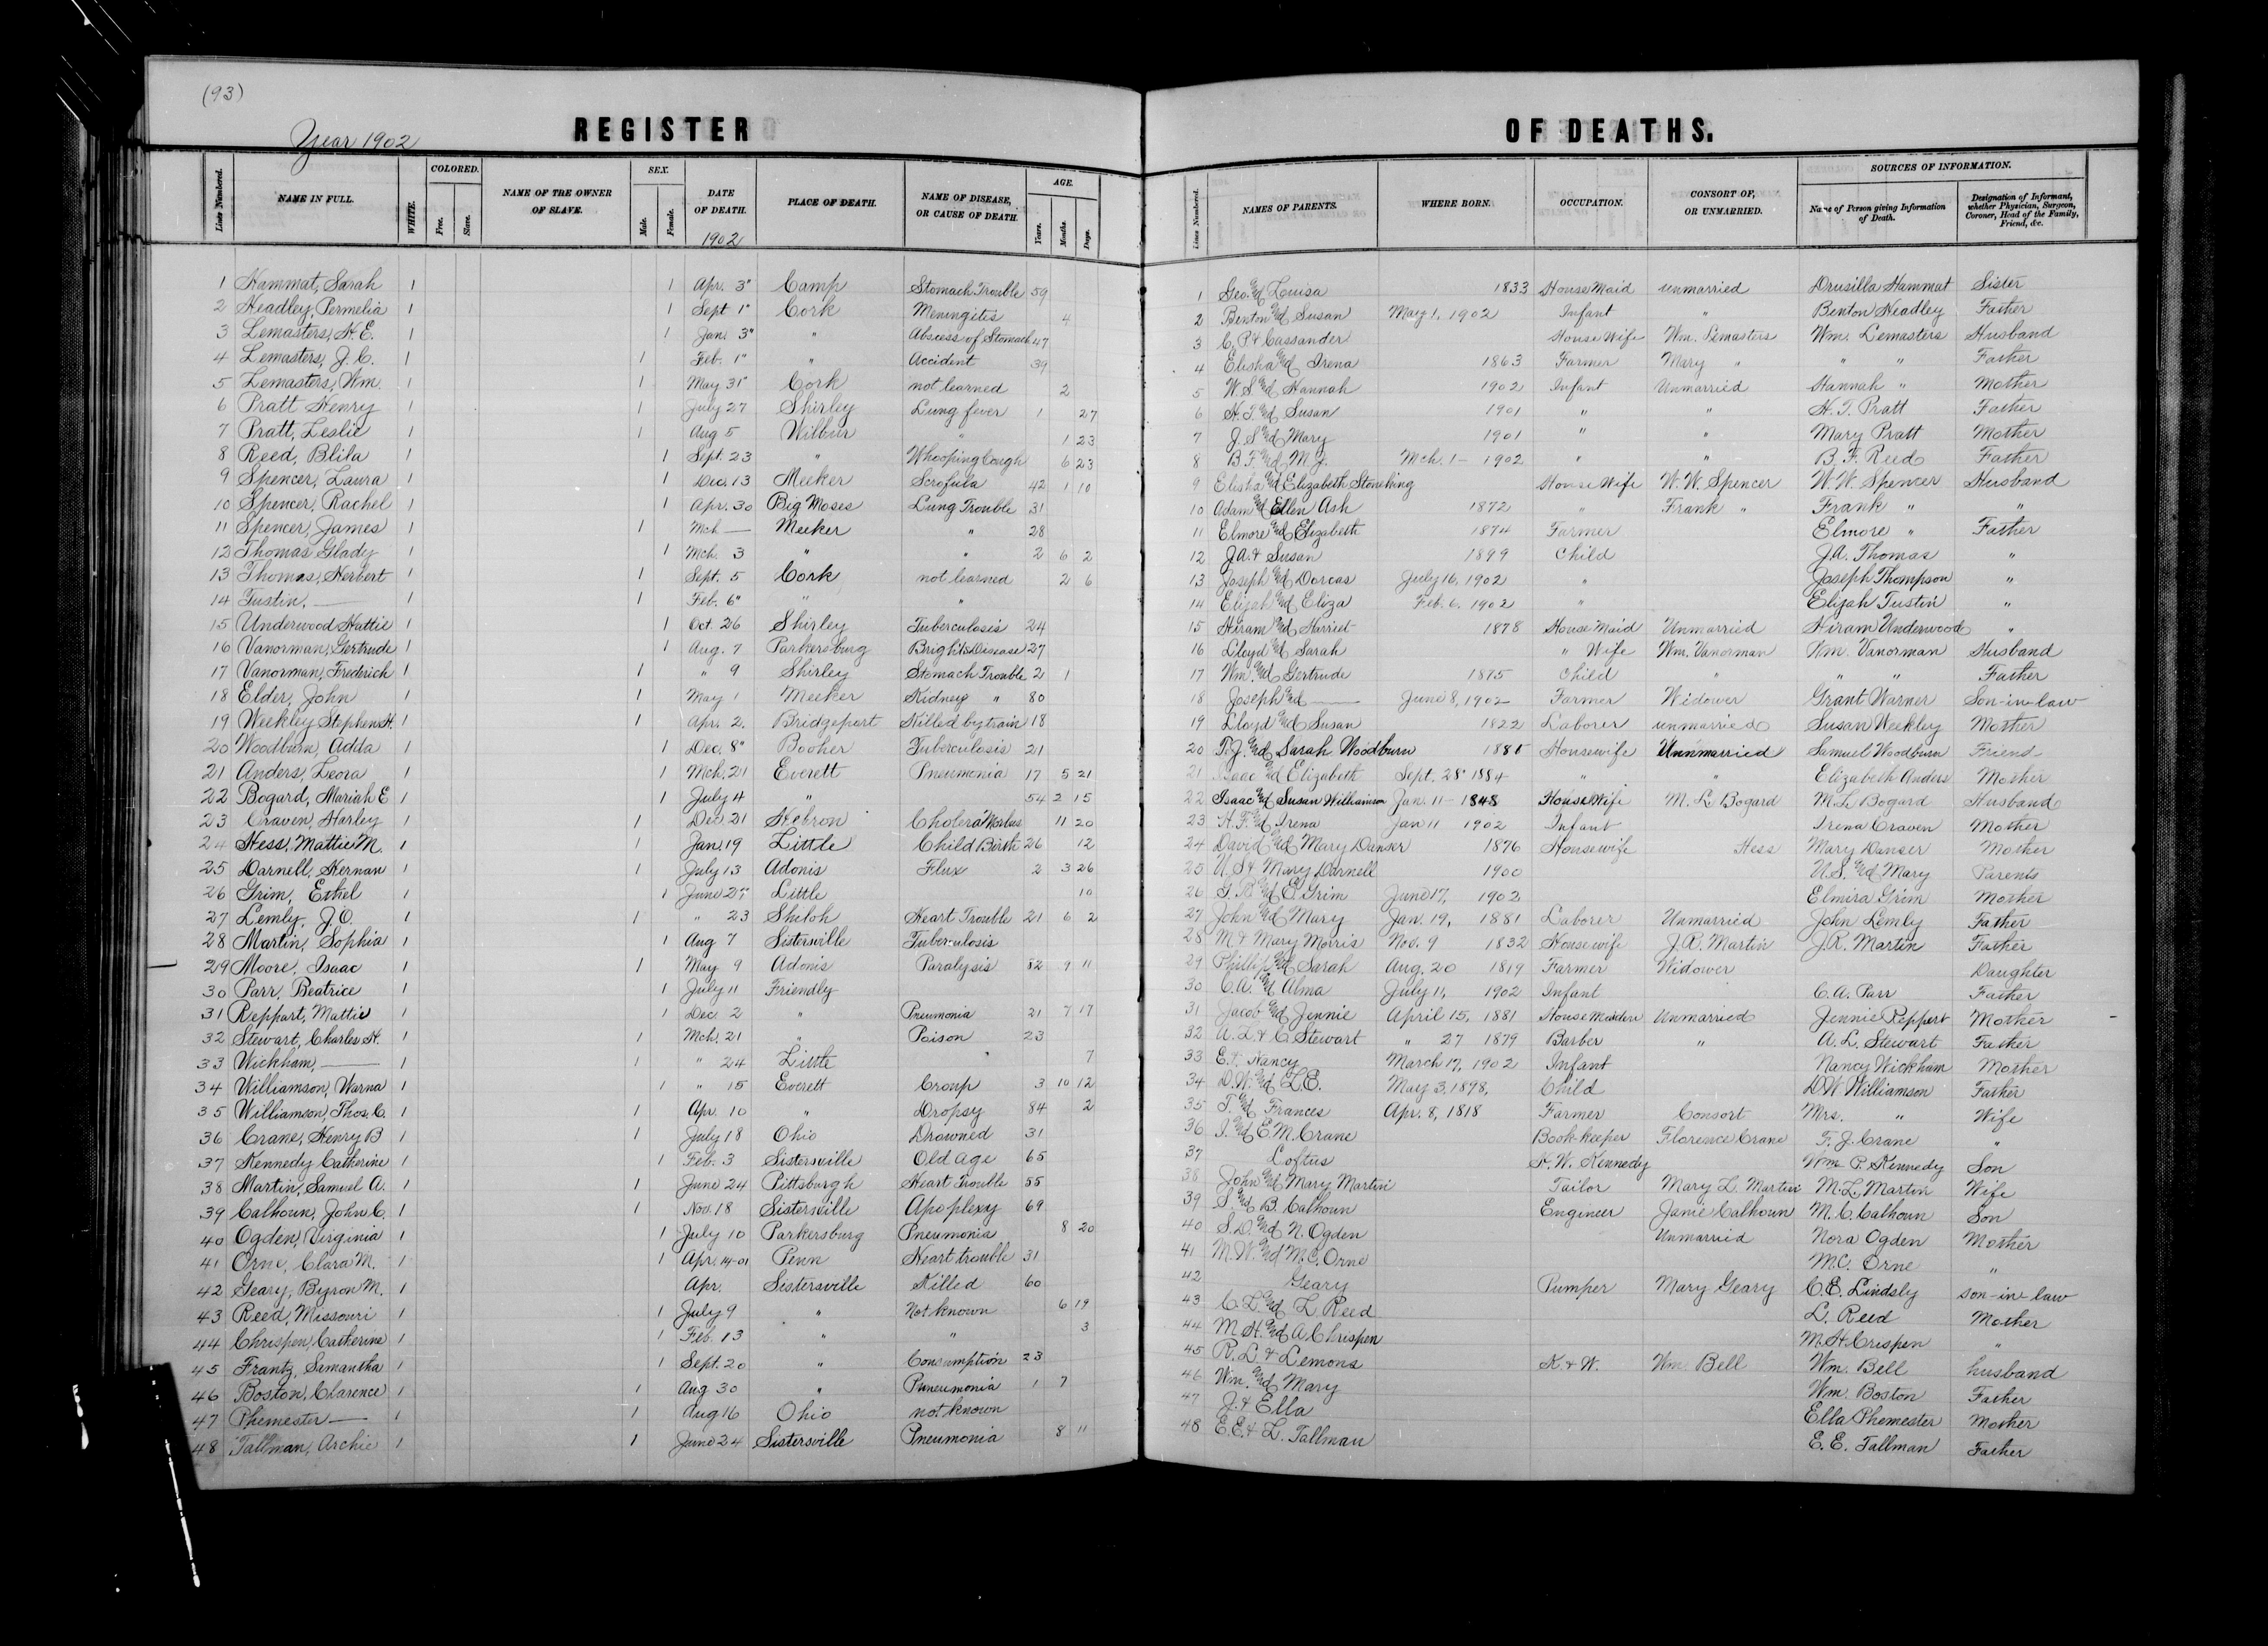 (93)
Year 1902
REGISTER
Lines Numbered. NAME IN FULL. WHITE. COLORED. Free. Slave. NAME OF THE OWNER OF SLAVE. SEX. Male. Female. DATE OF DEATH. PLACE OF DEATH. NAME OF DISEASE, OR CAUSE OF DEATH. AGE. Years. Months. Days.
1902
1 Hammat, Sarah 1 1 Apr. 3" Camp Stomach Trouble 59
2 Headley, Permelia 1 1 Sept 1" Cork Meningitis 4
3 Lemasters, H. E. 1 1 Jan. 3" " Abscess of Stomach 47
4 Lemasters, J. C. 1 1 Feb. 1" " Accident 39
5 Lemasters, Wm. 1 1 May 31" Cork not learned 2
6 Pratt Henry 1 1 July 27 Shirley Lung fever 1 27
7 Pratt, Leslie 1 1 Aug 5 Wilbur " 1 23
8 Reed, Blila 1 1 Sept. 23 " Whooping Cough 6 23
9 Spencer, Laura 1 1 Dec. 13 Meeker Scrofula 42 1 10
10 Spencer, Rachel 1 1 Apr. 30 Big Moses Lung Trouble 31
11 Spencer, James 1 1 Mch — Meeker " 28
12 Thomas Glady 1 1 Mch. 3 " " 2 6 2
13 Thomas, Herbert 1 1 Sept. 5 Cork not learned 2 6
14 Tustin, — 1 1 Feb. 6" " "
15 Underwood Hattie 1 1 Oct. 26 Shirley Tuberculosis 24
16 Vanorman, Gertrude 1 1 Aug. 7 Parkersburg Brights Disease 27
17 Vanorman, Frederich 1 1 " 9 Shirley Stomach Trouble 2 1
18 Elder, John 1 1 May 1 Meeker Kidney " 80
19 Weekley Stephen H. 1 1 Apr. 2. Bridgeport Killed by train 18
20 Woodburn, Adda 1 1 Dec. 8" Booher Tuberculosis 21
21 Anders, Leora 1 1 Mch. 21 Everett Pneumonia 17 5 21
22 Bogard, Mariah E 1 1 July 4 " 54 2 15
23 Craven, Harley 1 1 Dec 21 Hebron Cholera Morbus 11 20
24 Hess, Mattie M. 1 1 Jan. 19 Little Child Birth 26 12
25 Darnell, Hernan 1 1 July 13 Adonis Flux 2 3 26
26 Grim, Ethel 1 1 June 27 Little 10
27 Lemly, J. O. 1 1 " 23 Shiloh Heart Trouble 21 6 2
28 Martin, Sophia 1 1 Aug 7 Sistersville Tuberculosis
29 Moore, Isaac 1 1 May 9 Adonis Paralysis 82 9 11
30 Parr, Beatrice 1 1 July 11 Friendly
31 Reppart, Mattie 1 1 Dec. 2 " Pneumonia 21 7 17
32 Stewart, Charles H. 1 1 Mch. 21 " Poison 23
33 Wickham, — 1 1 " 24 Little " 7
34 Williamson, Warna 1 1 " 15 Everett Croup 3 10 12
35 Williamson, Thos. C. 1 1 Apr. 10 " Dropsy 84 2
36 Crane, Henry B 1 1 July 18 Ohio Drowned 31
37 Kennedy Catherine 1 1 Feb. 3 Sistersville Old age 65
38 Martin, Samuel A. 1 1 June 24 Pittsburgh Heart Trouble 55
39 Calhoun, John C. 1 1 Nov. 18 Sistersville Apoplexy 69
40 Ogden, Virginia 1 1 July 10 Parkersburg Pneumonia 8 20
41 Orne, Clara M. 1 1 Apr. 14-01 Penn Heart trouble 31
42 Geary, Byron M. 1 Apr. Sistersville Killed 60
43 Reed, Missouri 1 1 July 9 " Not known 6 19
44 Chrispen, Catherine 1 1 Feb. 13 " " 3
45 Frantz, Semantha 1 1 Sept. 20 " Consumption 23
46 Boston, Clarence 1 1 Aug 30 " Puneumonia 1 7
47 Phemester — 1 1 Aug 16 Ohio not known
48 Tallman, Archie 1 1 June 24 Sistersville Pneumonia 8 11
OF DEATHS.
Lines Numbered. NAMES OF PARENTS. WHERE BORN. OCCUPATION. CONSORT OF, OR UNMARRIED. SOURCES OF INFORMATION. Name of Person giving Information of Death. Designation of Informant, whether Physician, Surgeon, Coroner, Head of the Family, Friend, &c.
1 Geo. and Louisa 1833 House Maid unmarried Drusilla Hammat Sister
2 Benton and Susan May 1, 1902 Infant " Benton Headley Father
3 C. P. & Cassander House Wife Wm. Lemasters Wm. Lemasters Husband
4 Elisha and Irena 1863 Farmer Mary " " " Father
5 W. S. and Hannah 1902 Infant Unmarried Hannah " Mother
6 H. T. and Susan 1901 " " H. T. Pratt Father
7 J. S. and Mary 1901 " " Mary Pratt Mother
8 B. F. and M. J. Mch. 1- 1902 " " B. F. Reed Father
9 Elisha and Elizabeth Stoneking House Wife W. W. Spencer W. W. Spencer Husband
10 Adam and Ellen Ash 1872 " Frank " Frank " "
11 Elmore and Elizabeth 1874 Farmer Elmore " Father
12 J. A. & Susan 1899 Child J. A. Thomas "
13 Joseph and Dorcas July 16, 1902 " Joseph Thompson "
14 Elijah and Eliza Feb. 6, 1902 " Elijah Tustin "
15 Hiram and Harriet 1878 House Maid Unmarried Hiram Underwood "
16 Lloyd and Sarah " Wife Wm. Vanorman Wm. Vanorman Husband
17 Wm. and Gertrude 1875 Child " " " Father
18 Joseph and — June 8, 1902 Farmer Widower Grant Warner Son-in-law
19 Lloyd and Susan 1822 Laborer unmarried Susan Weekley Mother
20 T. J. and Sarah Woodburn 1881 Housewife Unnmarried Samuel Woodburn Friend
21 Isaac and Elizabeth Sept. 28" 1884 " " Elizabeth Anders Mother
22 Isaac and Susan Williamson Jan. 11- 1848 House Wife M. L. Bogard M. L. Bogard Husband
23 H. F. and Irena Jan 11 1902 Infant Irena Craven Mother
24 David and Mary Danser 1876 Housewife Hess Mary Danser Mother
25 U. S. & Mary Darnell 1900 U. S. and Mary Parents
26 G. B. and E. Grim June 17, 1902 Elmira Grim Mother
27 John and Mary Jan. 19, 1881 Laborer Unmarried John Lemly Father
28 M. & Mary Morris Nov. 9 1832 Housewife J. R. Martin J. R. Martin Father
29 Phillip and Sarah Aug. 20 1819 Farmer Widower Daughter
30 C. A. and Alma July 11, 1902 Infant C. A. Parr Father
31 Jacob and Jennie April 15, 1881 House Maiden Unmarried Jennie Reppert Mother
32 A. L. & C. Stewart " 27 1879 Barber " A. L. Stewart Father
33 E. & Nancy March 17, 1902 Infant Nancy Wickham Mother
34 D. W. and L. E. May 3, 1898, Child D. W. Williamson Father
35 T. and Frances Apr. 8, 1818 Farmer Consort Mrs. " Wife
36 I. and E. M. Crane Book-keeper Florence Crane F. J. Crane "
37 Loftus H. W. Kennedy Wm. P. Kennedy Son
38 John and Mary Martin Tailor Mary L. Martin M. L. Martin Wife
39 S. and B. Calhoun Engineer Janie Calhoun M. C. Calhoun Son
40 S. D. and N. Ogden Unmarried Nora Ogden Mother
41 M. W. and M. C. Orne M. C. Orne "
42 Geary Pumper Mary Geary C. E. Lindsly son-in-law
43 C. L. and L Reed L. Reed Mother
44 M. H. and A Chrispen M. H. Crispen "
45 R. L. & Lemons K. & W. Wm. Bell Wm. Bell husband
46 Wm. and Mary Wm. Boston Father
47 J. & Ella Ella Phemester Mother
48 E. E. & L. Tallman E. E. Tallman Father